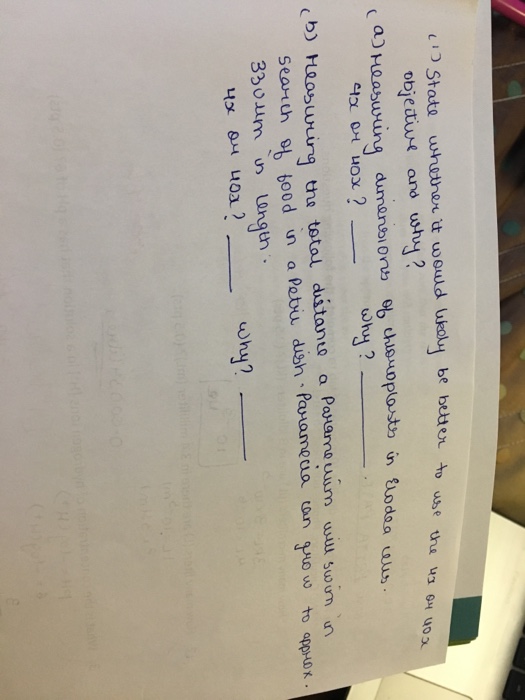 (1) State whether it would likely be better to use the 4x or 40x
objective and why?
(a) Measuring dimensions of chromoplasts in Elodea cells.
4x or 40x? ____ why? ________.
(b) Measuring the total distance a Paramecium will swim in
search of food in a Petri dish. Paramecia can grow to approx.
330um in length.
4x or 40x? ____ why? ____